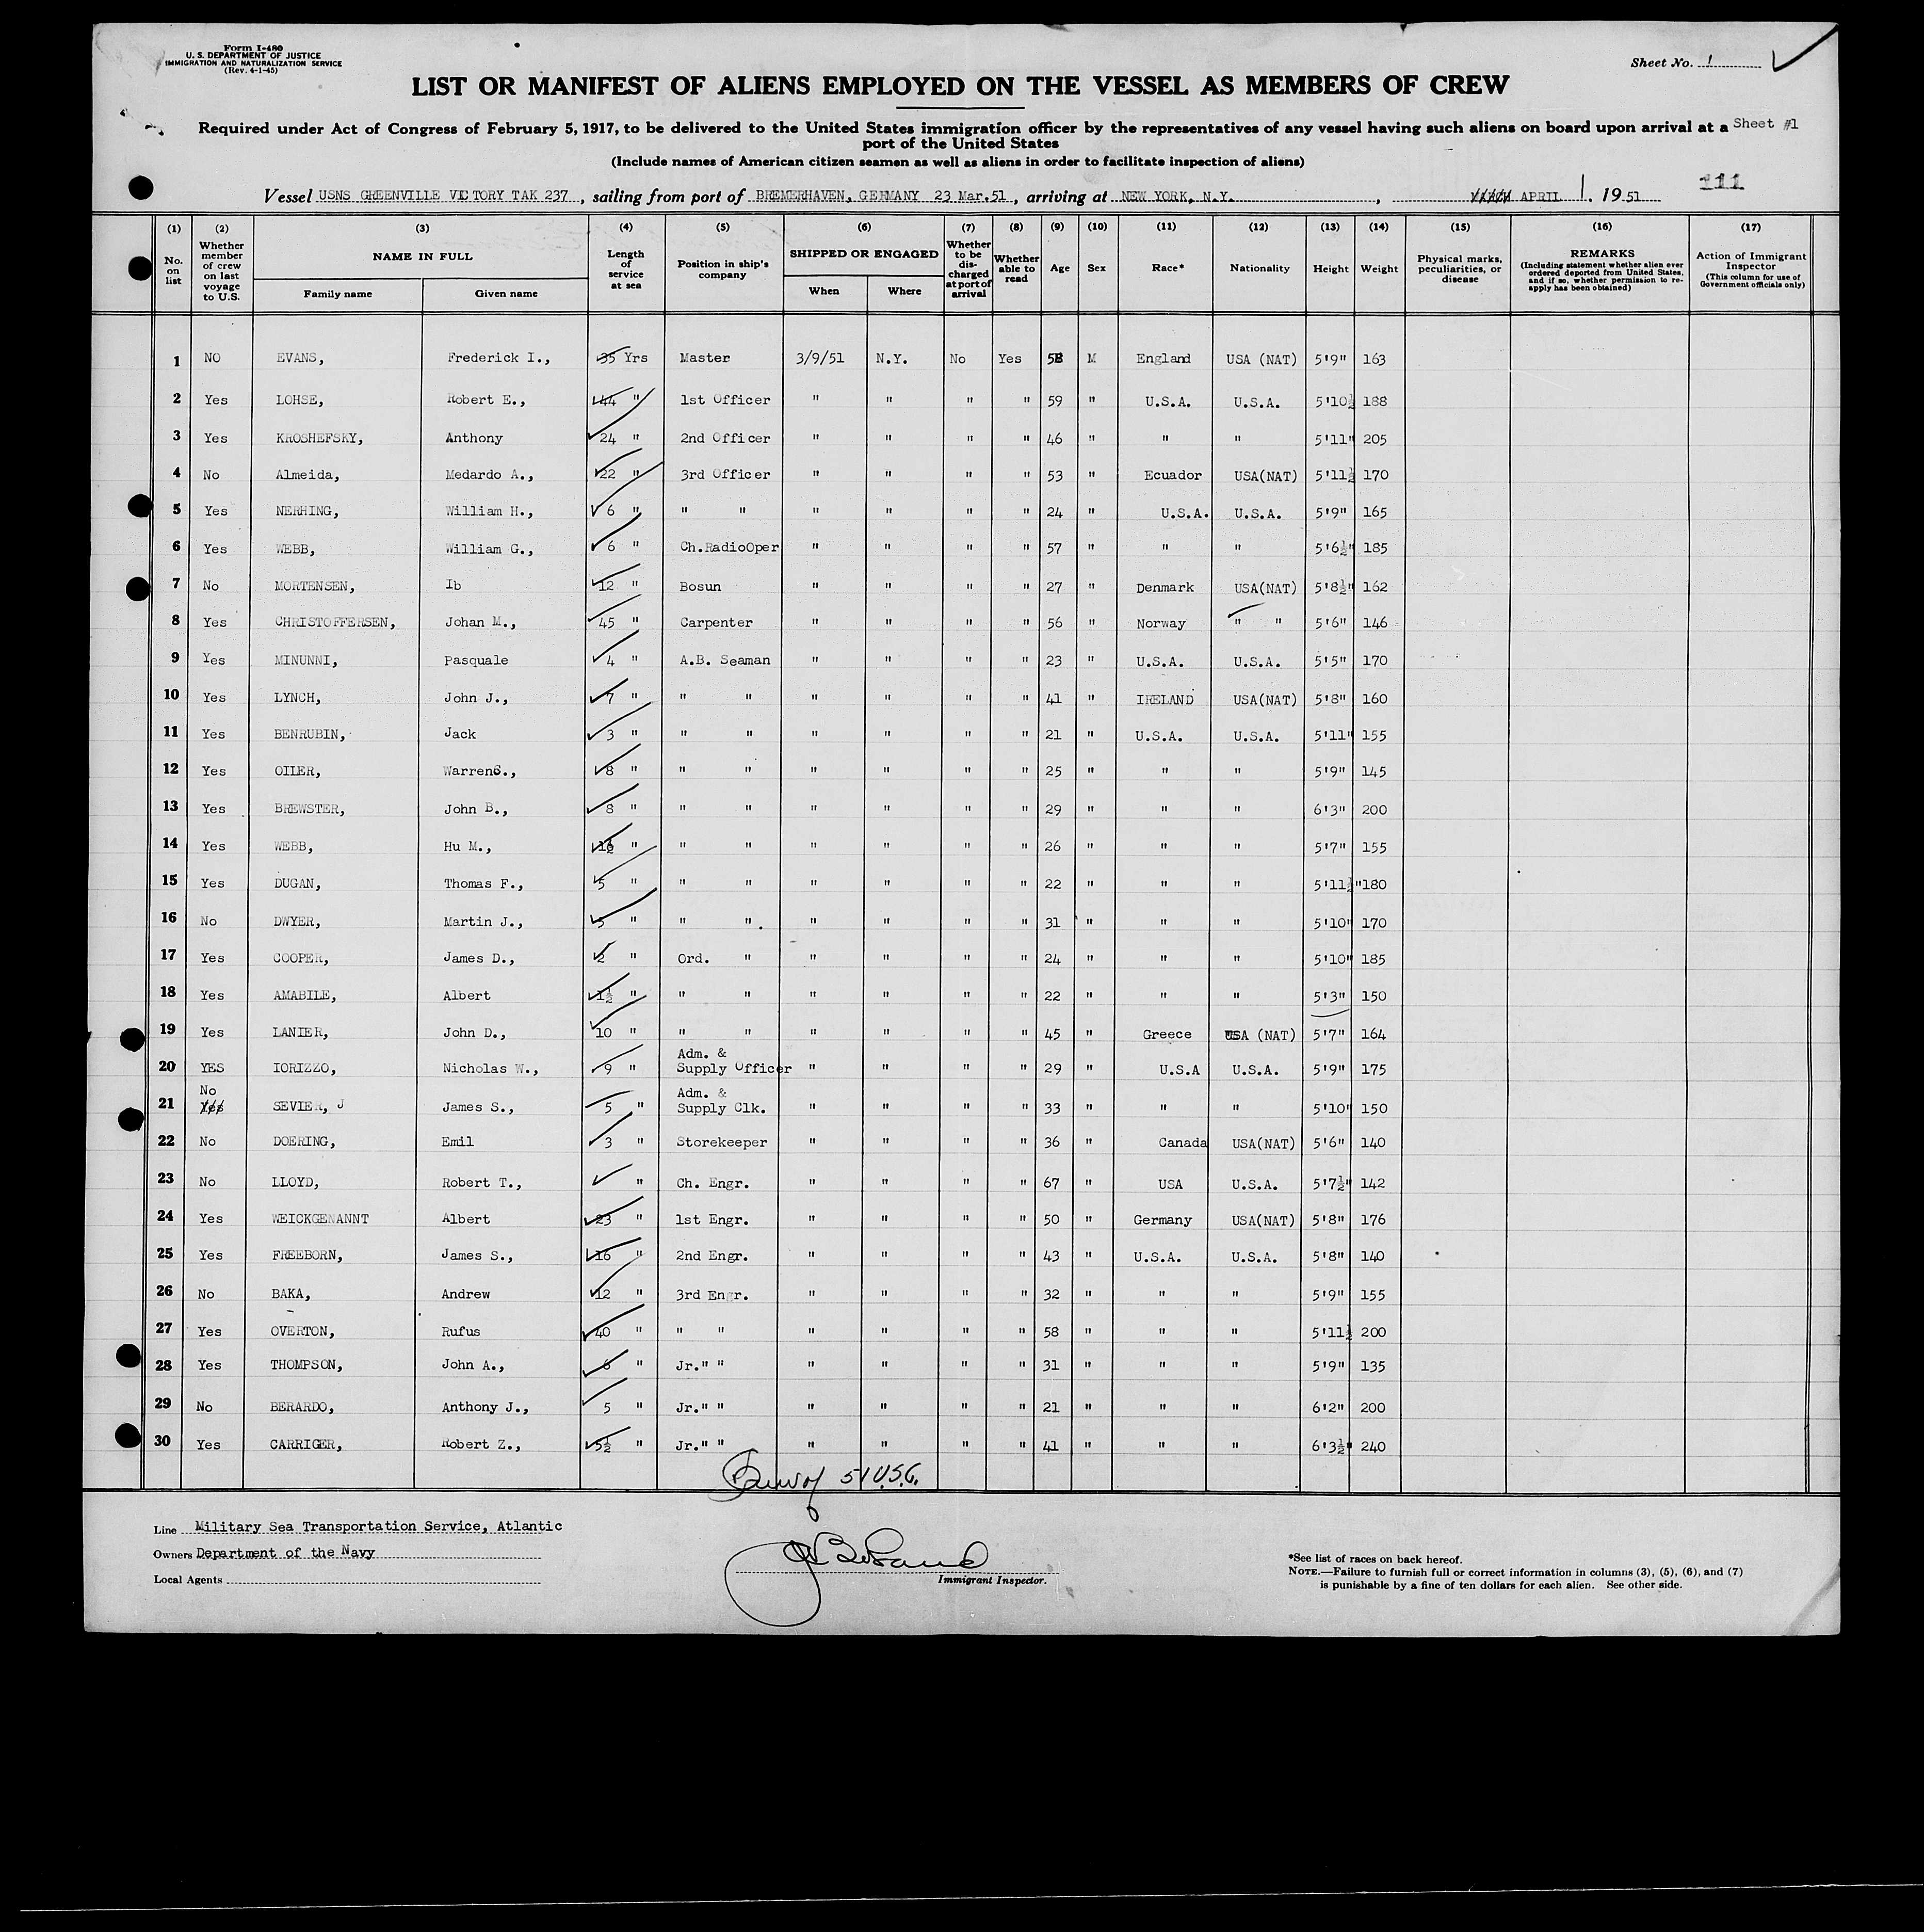 Form I-480
U. S. DEPARTMENT OF JUSTICE
IMMIGRATION AND NATURALIZATION SERVICE
(Rev. 4-1-45)
Sheet No. 1
LIST OR MANIFEST OF ALIENS EMPLOYED ON THE VESSEL AS MEMBERS OF CREW
Required under Act of Congress of February 5, 1917, to be delivered to the United States immigration officer by the representatives of any vessel having such aliens on board upon arrival at a Sheet #1
port of the United States
(Include names of American citizen seamen as well as aliens in order to facilitate inspection of aliens)
111
Vessel USNS GREENVILLE VICTORY TAK 237, sailing from port of BREMERHAVEN, GERMANY 23 Mar.51, arriving at NEW YORK, N.Y., APRIL 1. 1951
(1) (2) (3) (4) (5) (6) (7) (8) (9) (10) (11) (12) (13) (14) (15) (16) (17)
No. on list
Whether member of crew on last voyage to U.S.
NAME IN FULL
Family name
Given name
Length of service at sea
Position in ship's company
SHIPPED OR ENGAGED
When
Where
Whether to be discharged at port of arrival
Whether able to read
Age
Sex
Race*
Nationality
Height
Weight
Physical marks, peculiarities, or disease
REMARKS
(Including statement whether alien ever ordered deported from United States, and if so, whether permission to reapply has been obtained)
Action of Immigrant Inspector
(This column for use of Government officials only)
1 NO EVANS, Frederick I., 35 Yrs Master 3/9/51 N.Y. No Yes M England USA (NAT) 5'9" 163
2 Yes LOHSE, Robert E., 44 " 1st Officer " " " " 59 " U.S.A. U.S.A. 5'10½ 188
3 Yes KROSHEFSKY, Anthony 24 " 2nd Officer " " " " 46 " " " 5'11" 205
4 No Almeida, Medardo A., 22 " 3rd Officer " " " " 53 " Ecuador USA(NAT) 5'11½ 170
5 Yes NERHING, William H., 6 " " " " " " " 24 " U.S.A. U.S.A. 5'9" 165
6 Yes WEBB, William G., 6 " Ch.RadioOper " " " " 57 " " " 5'6½" 185
7 No MORTENSEN, Ib 12 " Bosun " " " " 27 " Denmark USA(NAT) 5'8½" 162
8 Yes CHRISTOFFERSEN, Johan M., 45 " Carpenter " " " " 56 " Norway " " 5'6" 146
9 Yes MINUNNI, Pasquale 4 " A.B. Seaman " " " " 23 " U.S.A. U.S.A. 5'5" 170
10 Yes LYNCH, John J., 7 " " " " " " " 41 " IRELAND USA(NAT) 5'8" 160
11 Yes BENRUBIN, Jack 3 " " " " " " " 21 " U.S.A. U.S.A. 5'11" 155
12 Yes OILER, WarrenG., 8 " " " " " " " 25 " " " 5'9" 145
13 Yes BREWSTER, John B., 8 " " " " " " " 29 " " " 6'3" 200
14 Yes WEBB, Hu M., " " " " " " " 26 " " " 5'7" 155
15 Yes DUGAN, Thomas F., 5 " " " " " " " 22 " " " 5'11½" 180
16 No DWYER, Martin J., 5 " " " " " " " 31 " " " 5'10" 170
17 Yes COOPER, James D., 2 " Ord. " " " " " 24 " " " 5'10" 185
18 Yes AMABILE, Albert 1½ " " " " " " " 22 " " " 5'3" 150
19 Yes LANIER, John D., 10 " " " " " " " 45 " Greece USA (NAT) 5'7" 164
20 YES IORIZZO, Nicholas W., 9 " Adm. & Supply Officer " " " " 29 " U.S.A U.S.A. 5'9" 175
21 No Yes SEVIER, J James S., 5 " Adm. & Supply Clk. " " " " 33 " " " 5'10" 150
22 No DOERING, Emil 3 " Storekeeper " " " " 36 " Canada USA(NAT) 5'6" 140
23 No LLOYD, Robert T., " Ch. Engr. " " " " 67 " USA U.S.A. 5'7½" 142
24 Yes WEICKGENANNT Albert 23 " 1st Engr. " " " " 50 " Germany USA(NAT) 5'8" 176
25 Yes FREEBORN, James S., 16 " 2nd Engr. " " " " 43 " U.S.A. U.S.A. 5'8" 140
26 No BAKA, Andrew 12 " 3rd Engr. " " " " 32 " " " 5'9" 155
27 Yes OVERTON, Rufus 40 " " " " " " " 58 " " " 5'11½ 200
28 Yes THOMPSON, John A., 6 " Jr." " " " " " 31 " " " 5'9" 135
29 No BERARDO, Anthony J., 5 " Jr." " " " " " 21 " " " 6'2" 200
30 Yes CARRIGER, Robert Z., 5½ " Jr." " " " " " 41 " " " 6'3½" 240
51 U.S.C.
Line Military Sea Transportation Service, Atlantic
Owners Department of the Navy
Local Agents
Immigrant Inspector.
*See list of races on back hereof.
NOTE.—Failure to furnish full or correct information in columns (3), (5), (6), and (7)
is punishable by a fine of ten dollars for each alien. See other side.